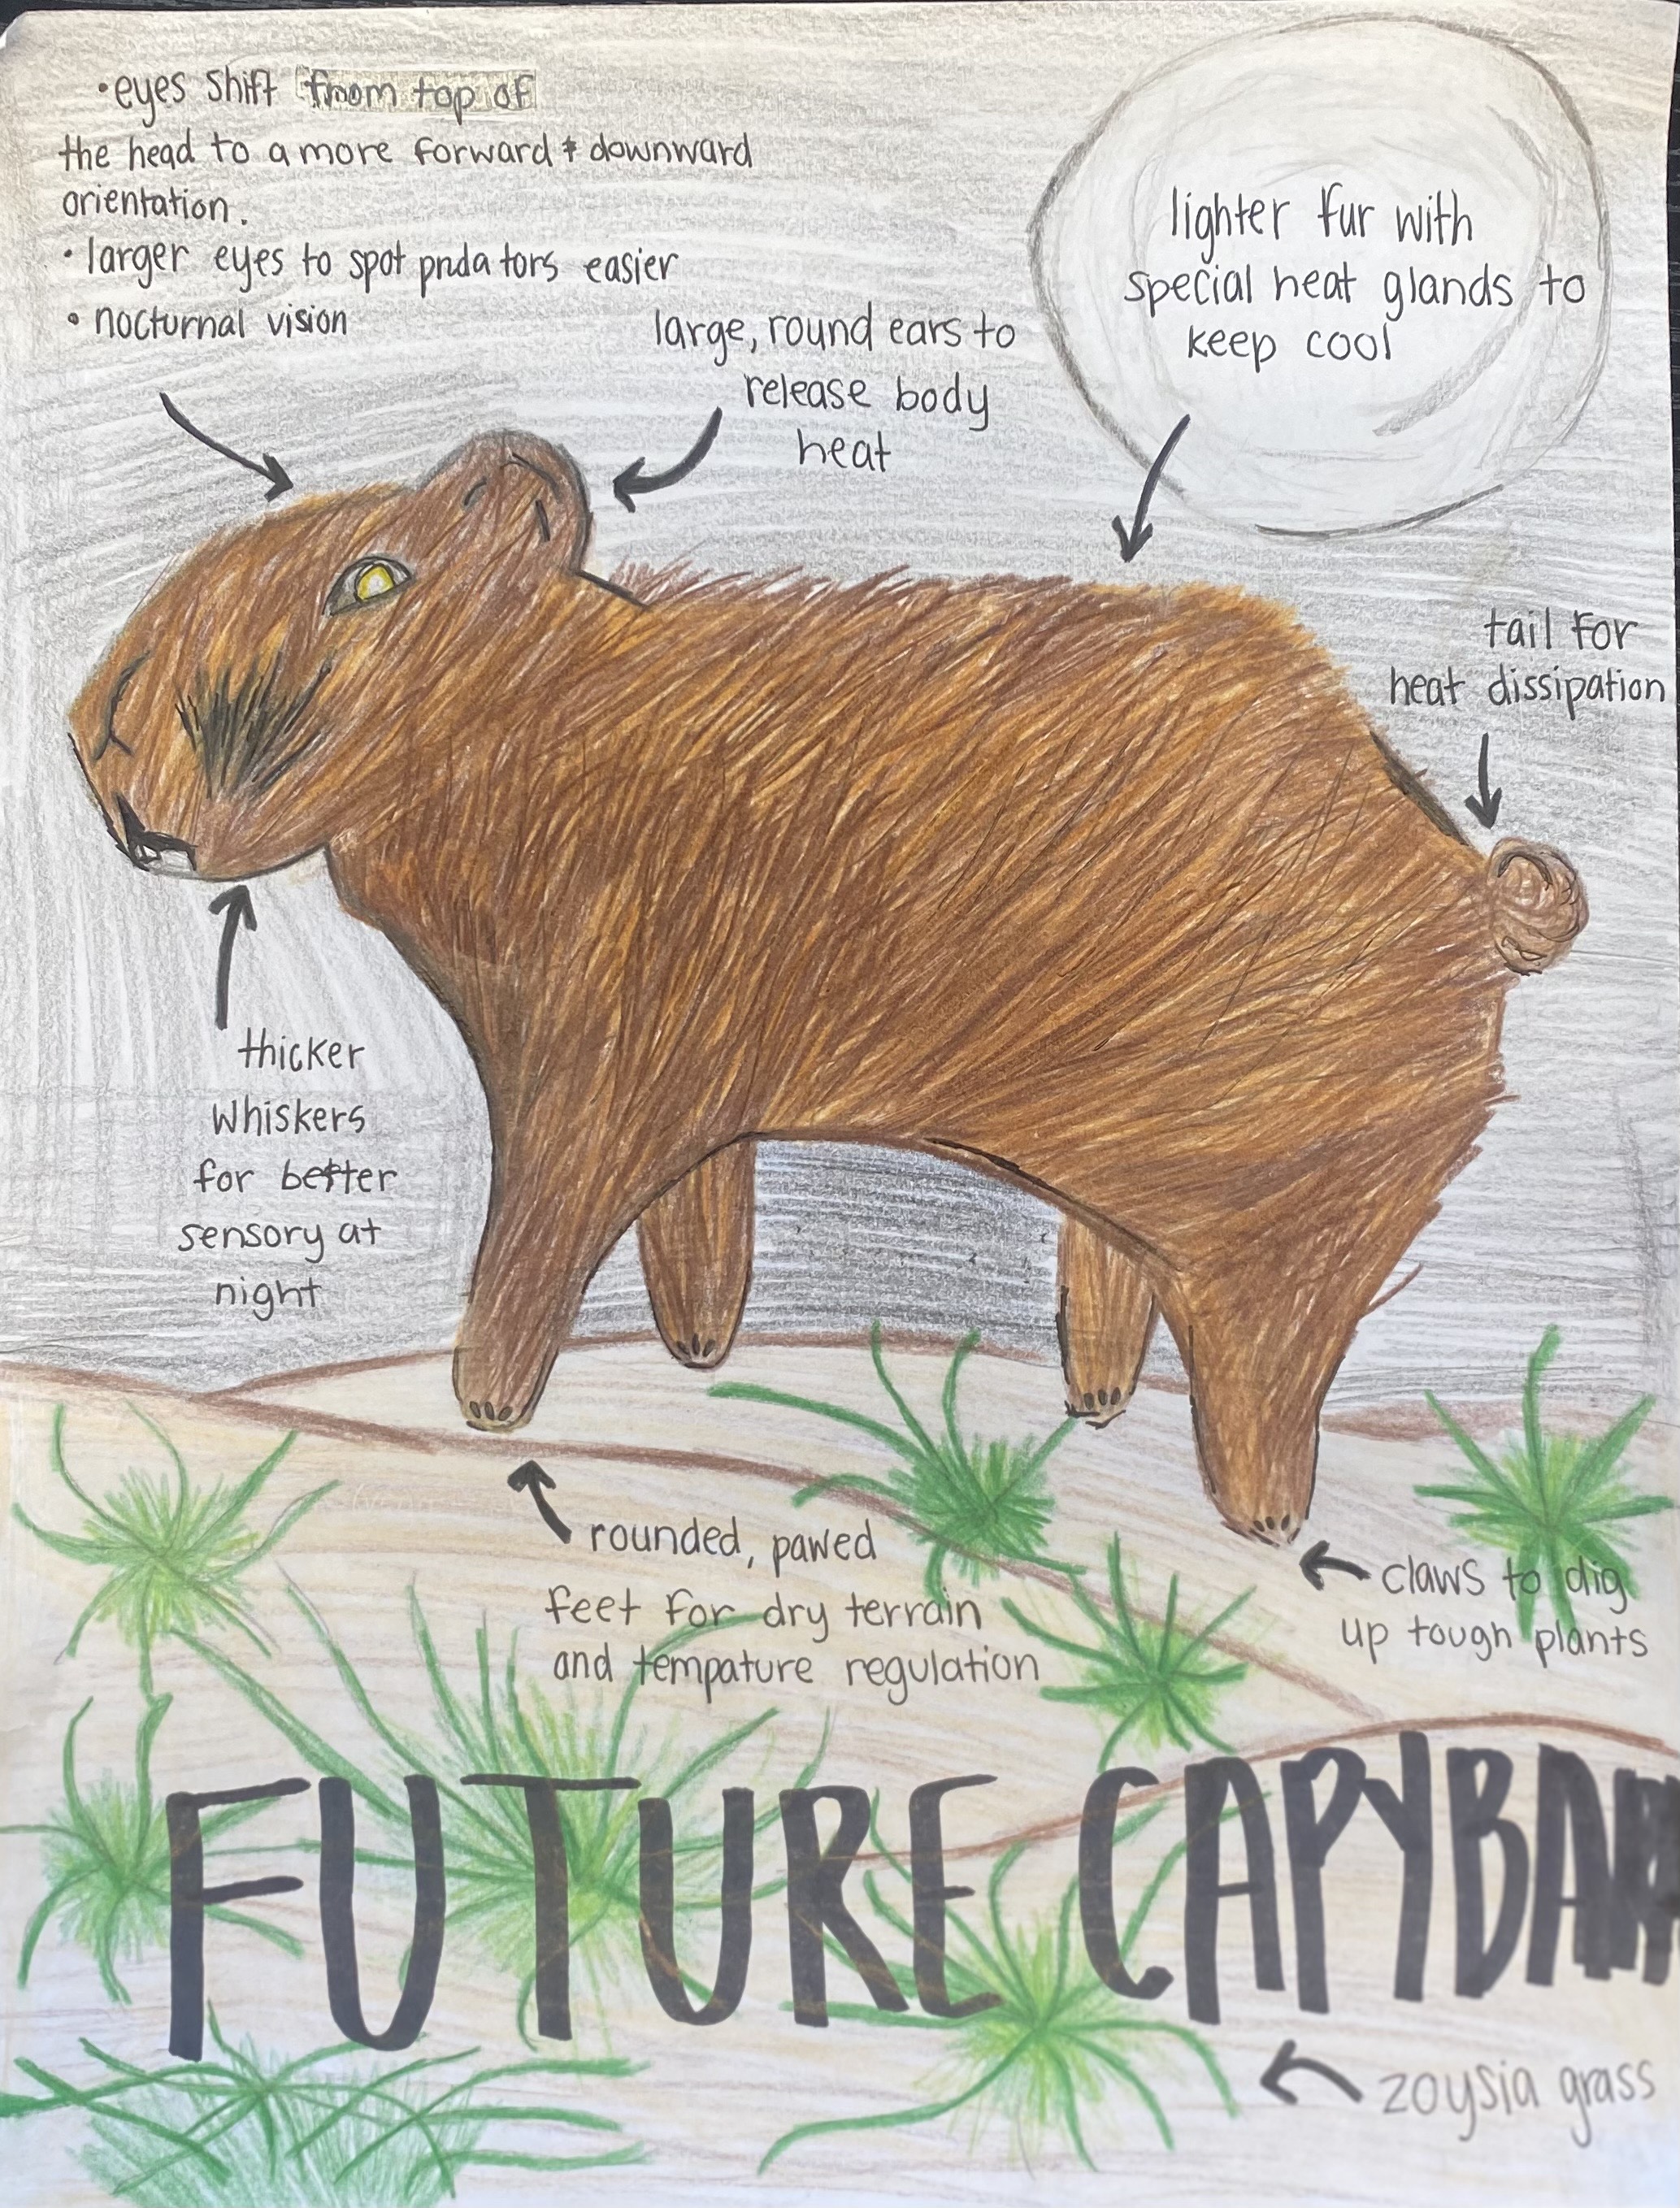 •eyes shift from top of
the head to a more forward & downward
orientation.
• larger eyes to spot predators easier
• nocturnal vision
large, round ears to
release body
heat
lighter fur with
special heat glands to
keep cool
tail for
heat dissipation
thicker
whiskers
for better
sensory at
night
rounded, pawed
feet for dry terrain
and tempature regulation
claws to dig
up tough plants
FUTURE CAPYBARA
zoysia grass